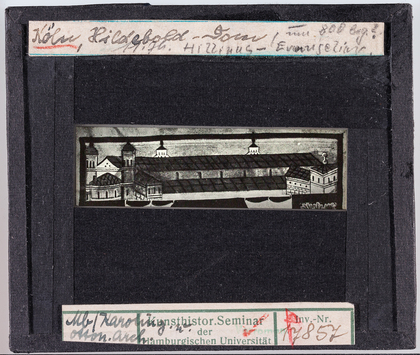 Köln, Hildebold-Dom, um 800 beg.?
Hillinus-Evangeliar.
Mb/Karoling. u.
otton. Arch.
Kunsthistor. Seminar
der
Hamburgischen Universität
Inv.-Nr.
17857